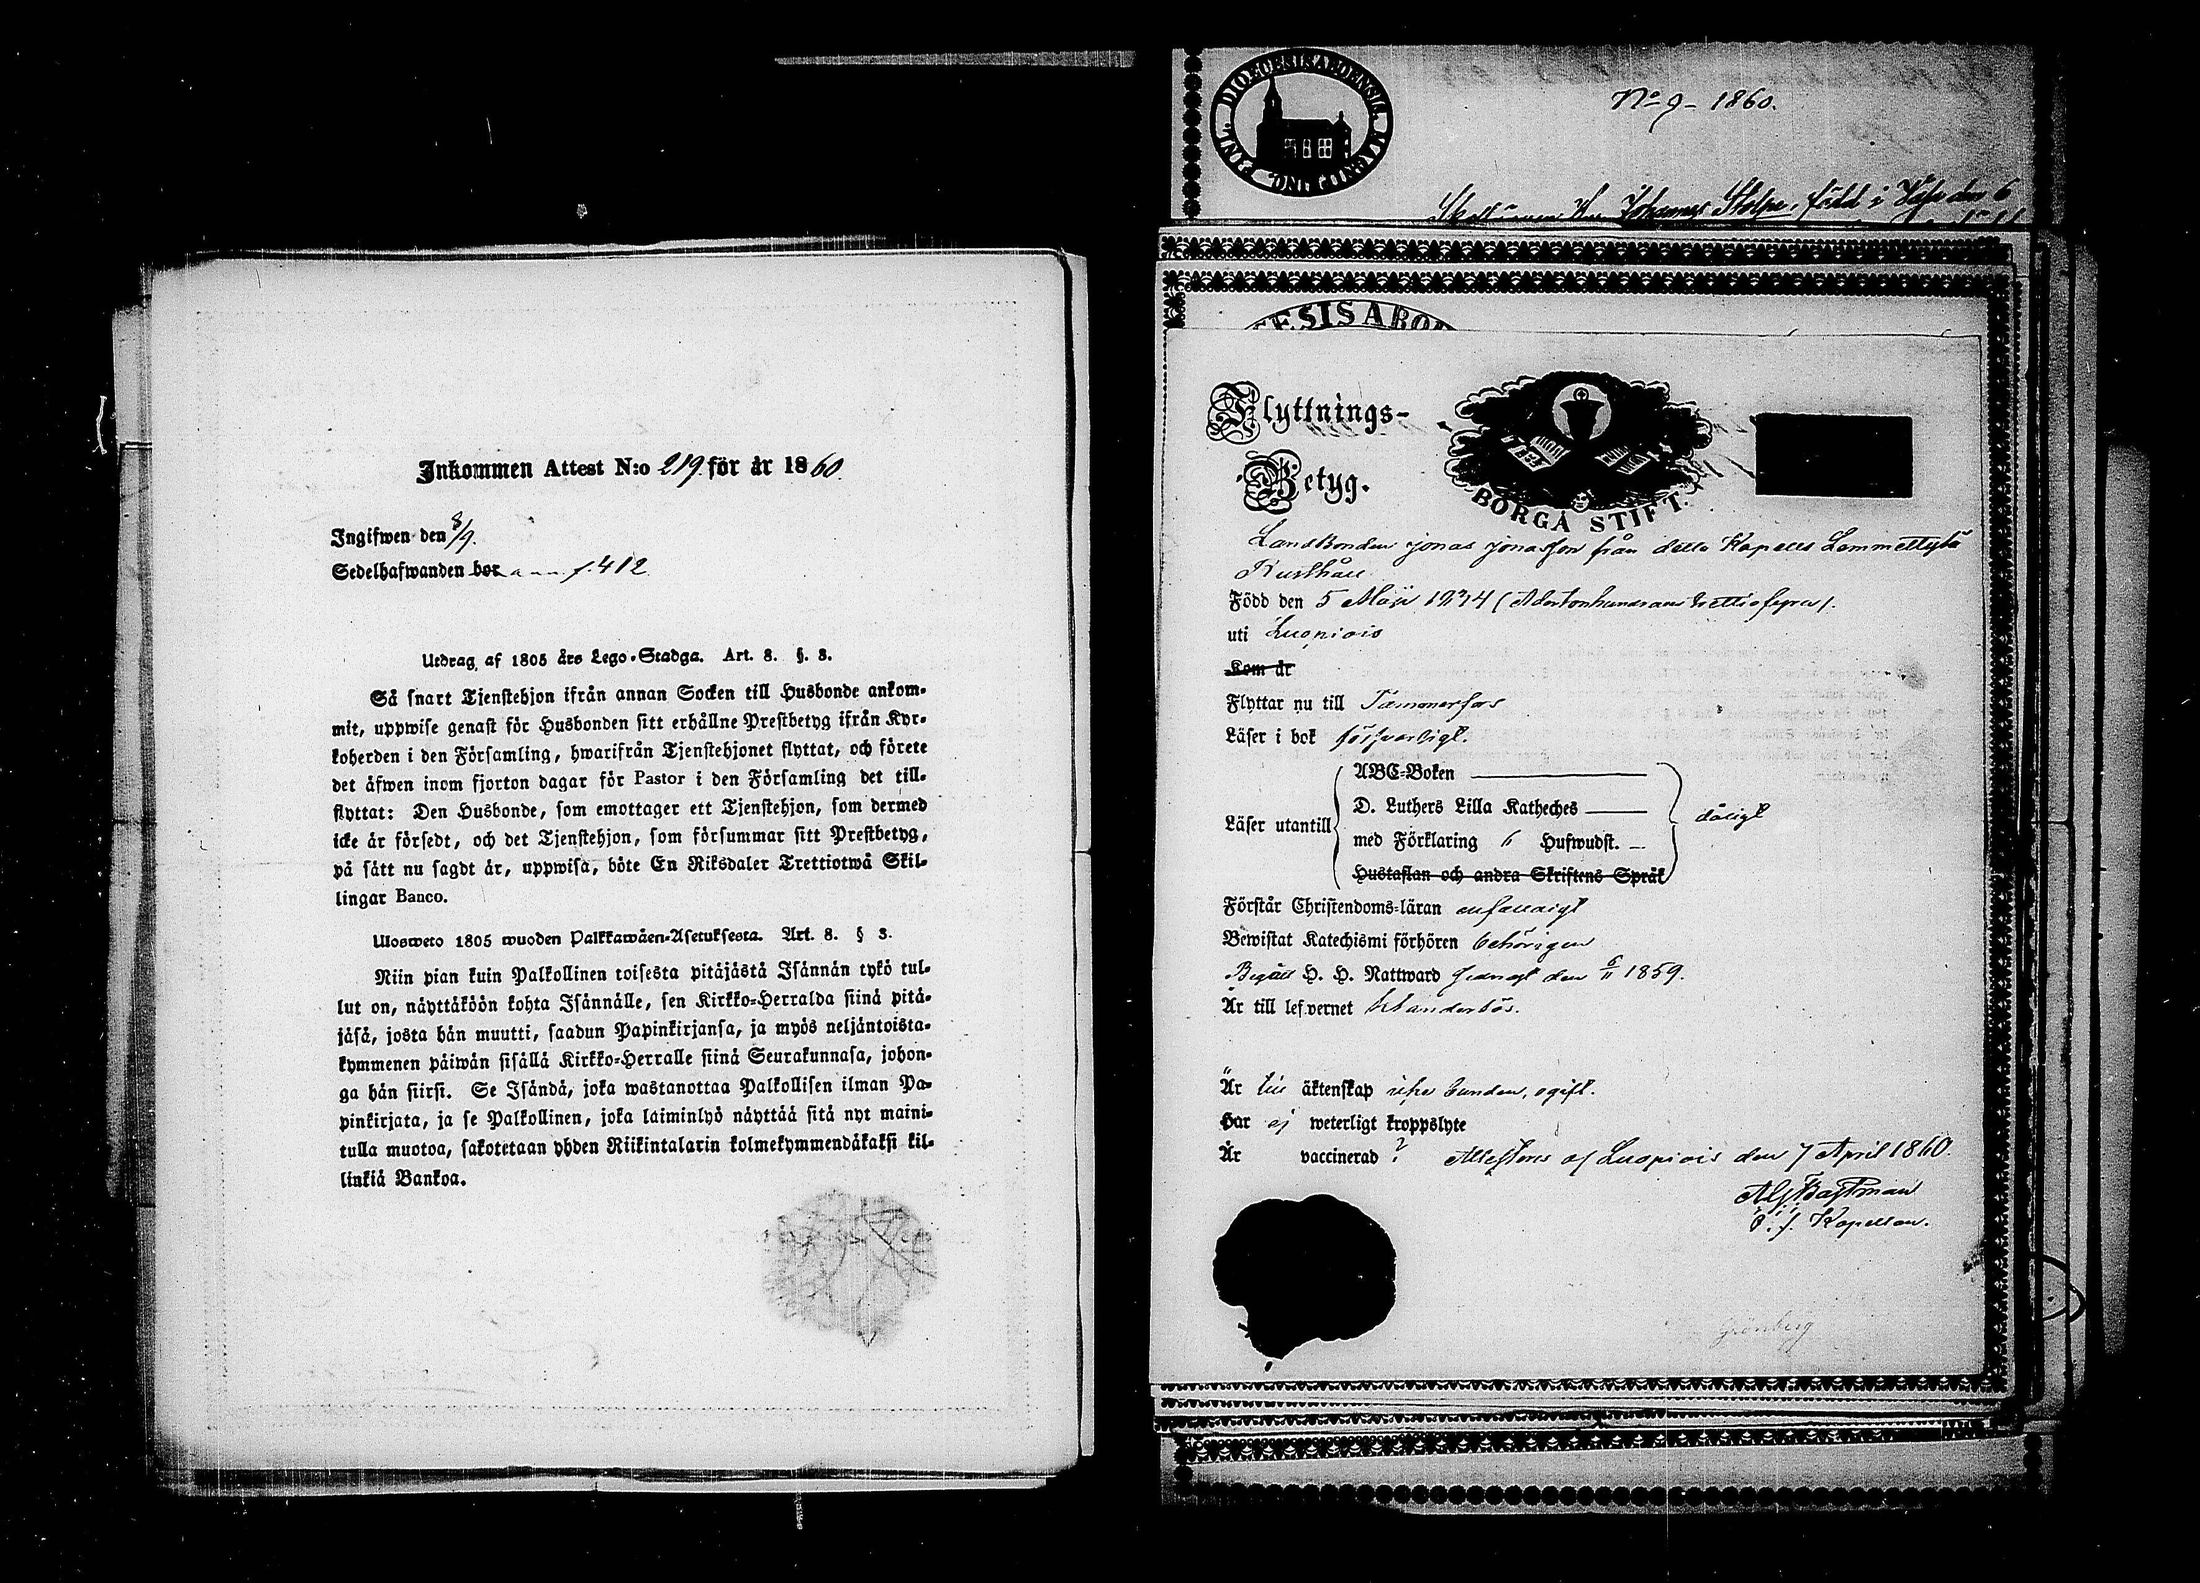 Inkommen Attest N:o 219. för år 1860.
Ingifwen den 8/9.
Sedelhafwanden bor f. 412
Utdrag af 1805 års Lego-Stadga. Art. 8. §. 8.
Så snart Tjenstehjon ifrån annan Socken till Husbonde ankom-
mit, uppwise genast för Husbonden sitt erhållne Prestbetyg ifrån Kyr-
koherden i den Församling, hwarifrån Tjenstehjonet flyttat, och förete
det äfwen inom fjorton dagar för Pastor i den Församling det till-
flyttat: Den Husbonde, som emottager ett Tjenstehjon, som dermed
icke är försedt, och det Tjenstehjon, som försummar sitt Prestbetyg,
på sätt nu sagdt är, uppwisa, böte En Riksdaler Trettiotwå Skil-
lingar Banco.
Ulosweto 1805 wuoden Palkkawäen-Asetuksesta. Art. 8. § 3.
Niin pian kuin Palkollinen toisesta pitäjästä Isännän tykö tul-
lut on, näyttäköön kohta Isännälle, sen Kirkko-Herralda siinä pitä-
jäsä, josta hän muutti, saadun Papinkirjansa, ja myös neljäntoista-
kymmenen päiwän sisällä Kirkko-Herralle siinä Seurakunnasa, johon-
ga hän siirsi. Se Isändä, joka wastanottaa Palkollisen ilman Pa-
pinkirjata, ja se Palkollinen, joka laiminlyö näyttää sitä nyt maini-
tulla muotoa, sakotetaan yhden Riikintalarin kolmekymmendäkaksi kil-
linkiä Bankoa.
No 9 - 1860.
Johannes Stolpe, född i den 6
ESIS ABO
Flyttnings-
Betyg.
BORGÅ STIFT.
Landbonden Jonas Jonasson från detta Kapells Lammettylä
Rusthåll
Född den 5 Maji 1834 (Adertonhundrade trettiofyra).
uti Luopiois
Kom år
Flyttar nu till Tammerfors
Läser i bok försvarligt.
ABC-Boken
D. Luthers Lilla Katheches
Läser utantill dåligt
med Förklaring 6 Hufwudst.
Hustaflan och andra Skriftens Språk
Förstår Christendoms-läran enfaldigt
Bewistat Katechismi förhören behörigen
Begått H. H. Nattward senast den 6/11 1859.
Är till lefvernet klanderlös.
Är till äktenskap icke bunden, ogift.
Har ej weterligt kroppslyte
Är vaccinerad? Attesteras af Luopiois den 7 April 1860.
Kapellan.
Grönberg